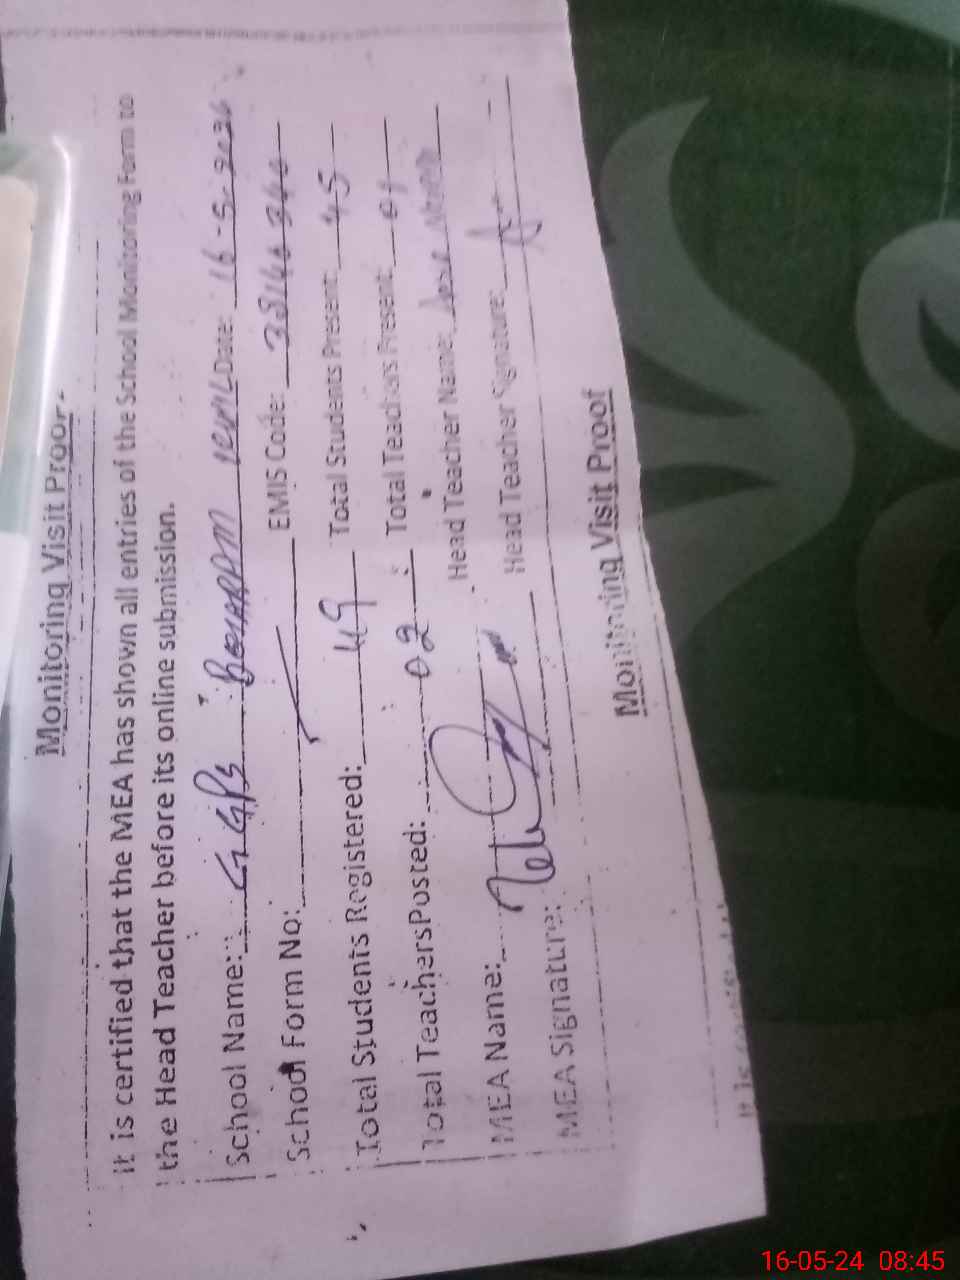 Monitoring Visit Proof
It is certified that the MEA has shown all entries of the School Monitoring Form to
the Head Teacher before its online submission.
School Name: GGPS Date: 16-5-2024
School Form No: EMIS Code:
Total Students Registered: 49 Total Students Present: 45
Total Teachers Posted: 02 Total Teachers Present: 01
MEA Name: Head Teacher Name:
MEA Signature: Head Teacher Signature:
Monitoring Visit Proof
It is
16-05-24 08:45